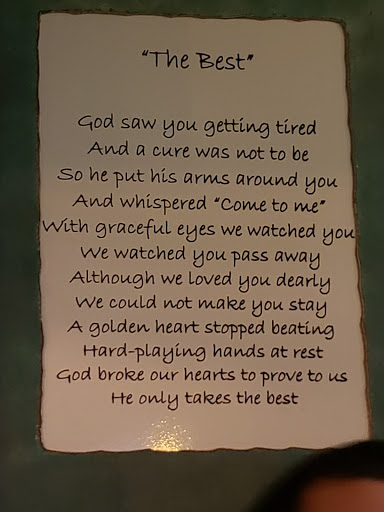 "The Best"
God saw you getting tired
And a cure was not to be
So he put his arms around you
And whispered "Come to me"
With graceful eyes we watched you
We watched you pass away
Although we loved you dearly
We could not make you stay
A golden heart stopped beating
Hard-playing hands at rest
God broke our hearts to prove to us
He only takes the best